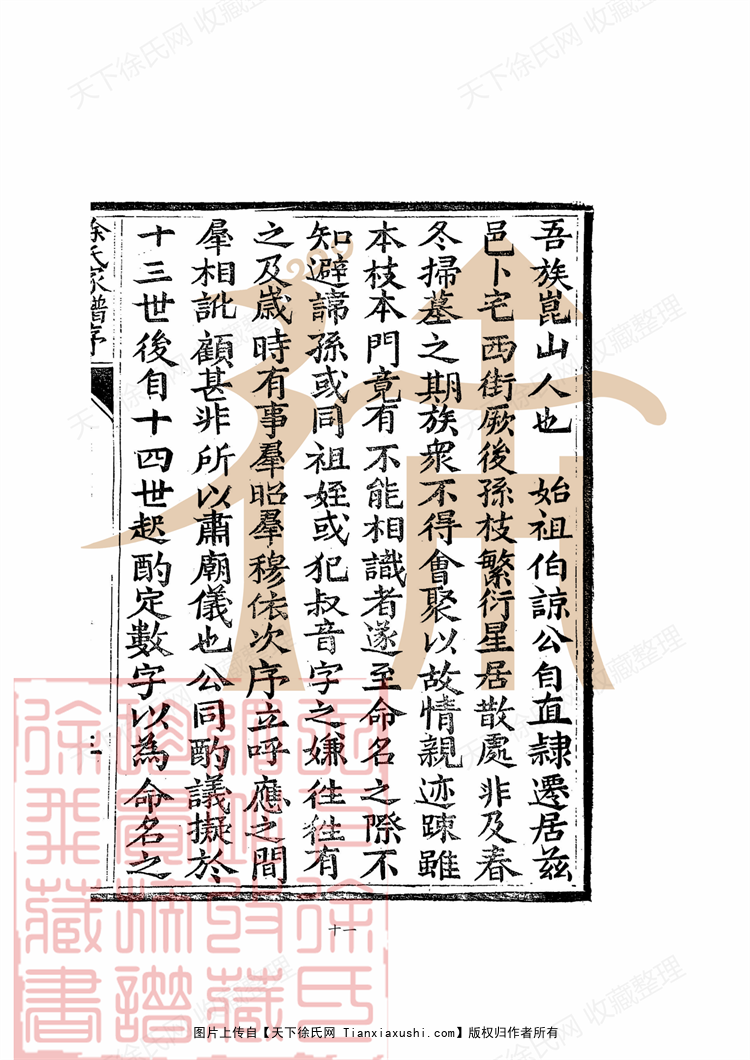 吾族崑山人也　始祖伯諒公自直隸遷居茲
邑卜宅西街厥後孫枝繁衍星居散處非及春
冬掃墓之期族衆不得會聚以故情親迹踈雖
本枝本門竟有不能相識者遂至命名之際不
知避諱孫或同祖姪或犯叔音字之嫌徃徃有
之及歲時有事羣昭羣穆依次序立呼應之間
羣相訿顧甚非所以肅廟儀也公同酌議擬於
十三世後自十四世起酌定數字以為命名之
徐氏家譜序
十一
天下徐氏网 收藏整理
图片上传自【天下徐氏网 Tianxiaxushi.com】版权归作者所有